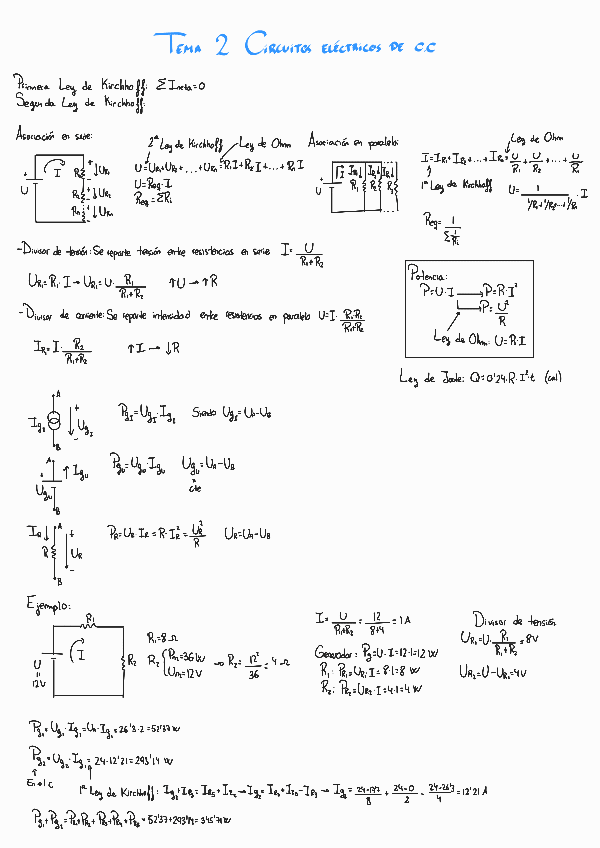 TEMA 2 CIRCUITOS ELÉCTRICOS DE C.C
Primera Ley de Kirchhoff: ΣI neta=0
Segunda Ley de Kirchhoff:
Asociación en serie:
2ª Ley de Kirchhoff
Ley de Ohm
U=UR1+UR2+...+URi=R1·I+R2·I+...+Ri·I
U=Req·I
Req=ΣRi
Asociación en paralelo:
Ley de Ohm
I=IR1+IR2+...+IRi=U/R1+U/R2+...+U/Ri
1ª Ley Kirchhoff
U=1/(1/R1+1/R2+...+1/Ri)·I
Req=1/(Σ1/Ri)
-Divisor de tensión: Se reparte tensión entre resistencias en serie I=U/(R1+R2)
UR1=R1·I→UR1=U·R1/(R1+R2) ↑U→↑R
-Divisor de corriente: Se reparte intensidad entre resistencias en paralelo U=I·R1·R2/(R1+R2)
IR=I·R2/(R1+R2) ↑I→↓R
Potencia:
P=U·I→P=R·I²
→P=U²/R
Ley de Ohm: U=R·I
Ley de Joule: Q=0'24·R·I²·t (cal)
PgI=UgI·IgI Siendo UgI=UA-UB
PgU=UgU·IgU UgU=UA-UB
cte
PR=UR·IR=R·IR²=UR²/R UR=UA-UB
Ejemplo:
R1=8Ω
R2 {PR2=36W
UR2=12V
→ R2=12²/36=4Ω
U
=
12V
I=U/(R1+R2)=12/(8+4)=1A
Generador: Pg=U·I=12·1=12W
R1: PR1=UR1·I=8·1=8W
R2: PR2=UR2·I=4·1=4W
Divisor de tensión
UR1=U·R1/(R1+R2)=8V
UR2=U-UR1=4V
Pg1=Ug1·Ig1=UA·Ig1=26'3·2=52'37W
Pg2=Ug2·Ig2=24·12'21=293'14W
1ª Ley Kirchhoff: